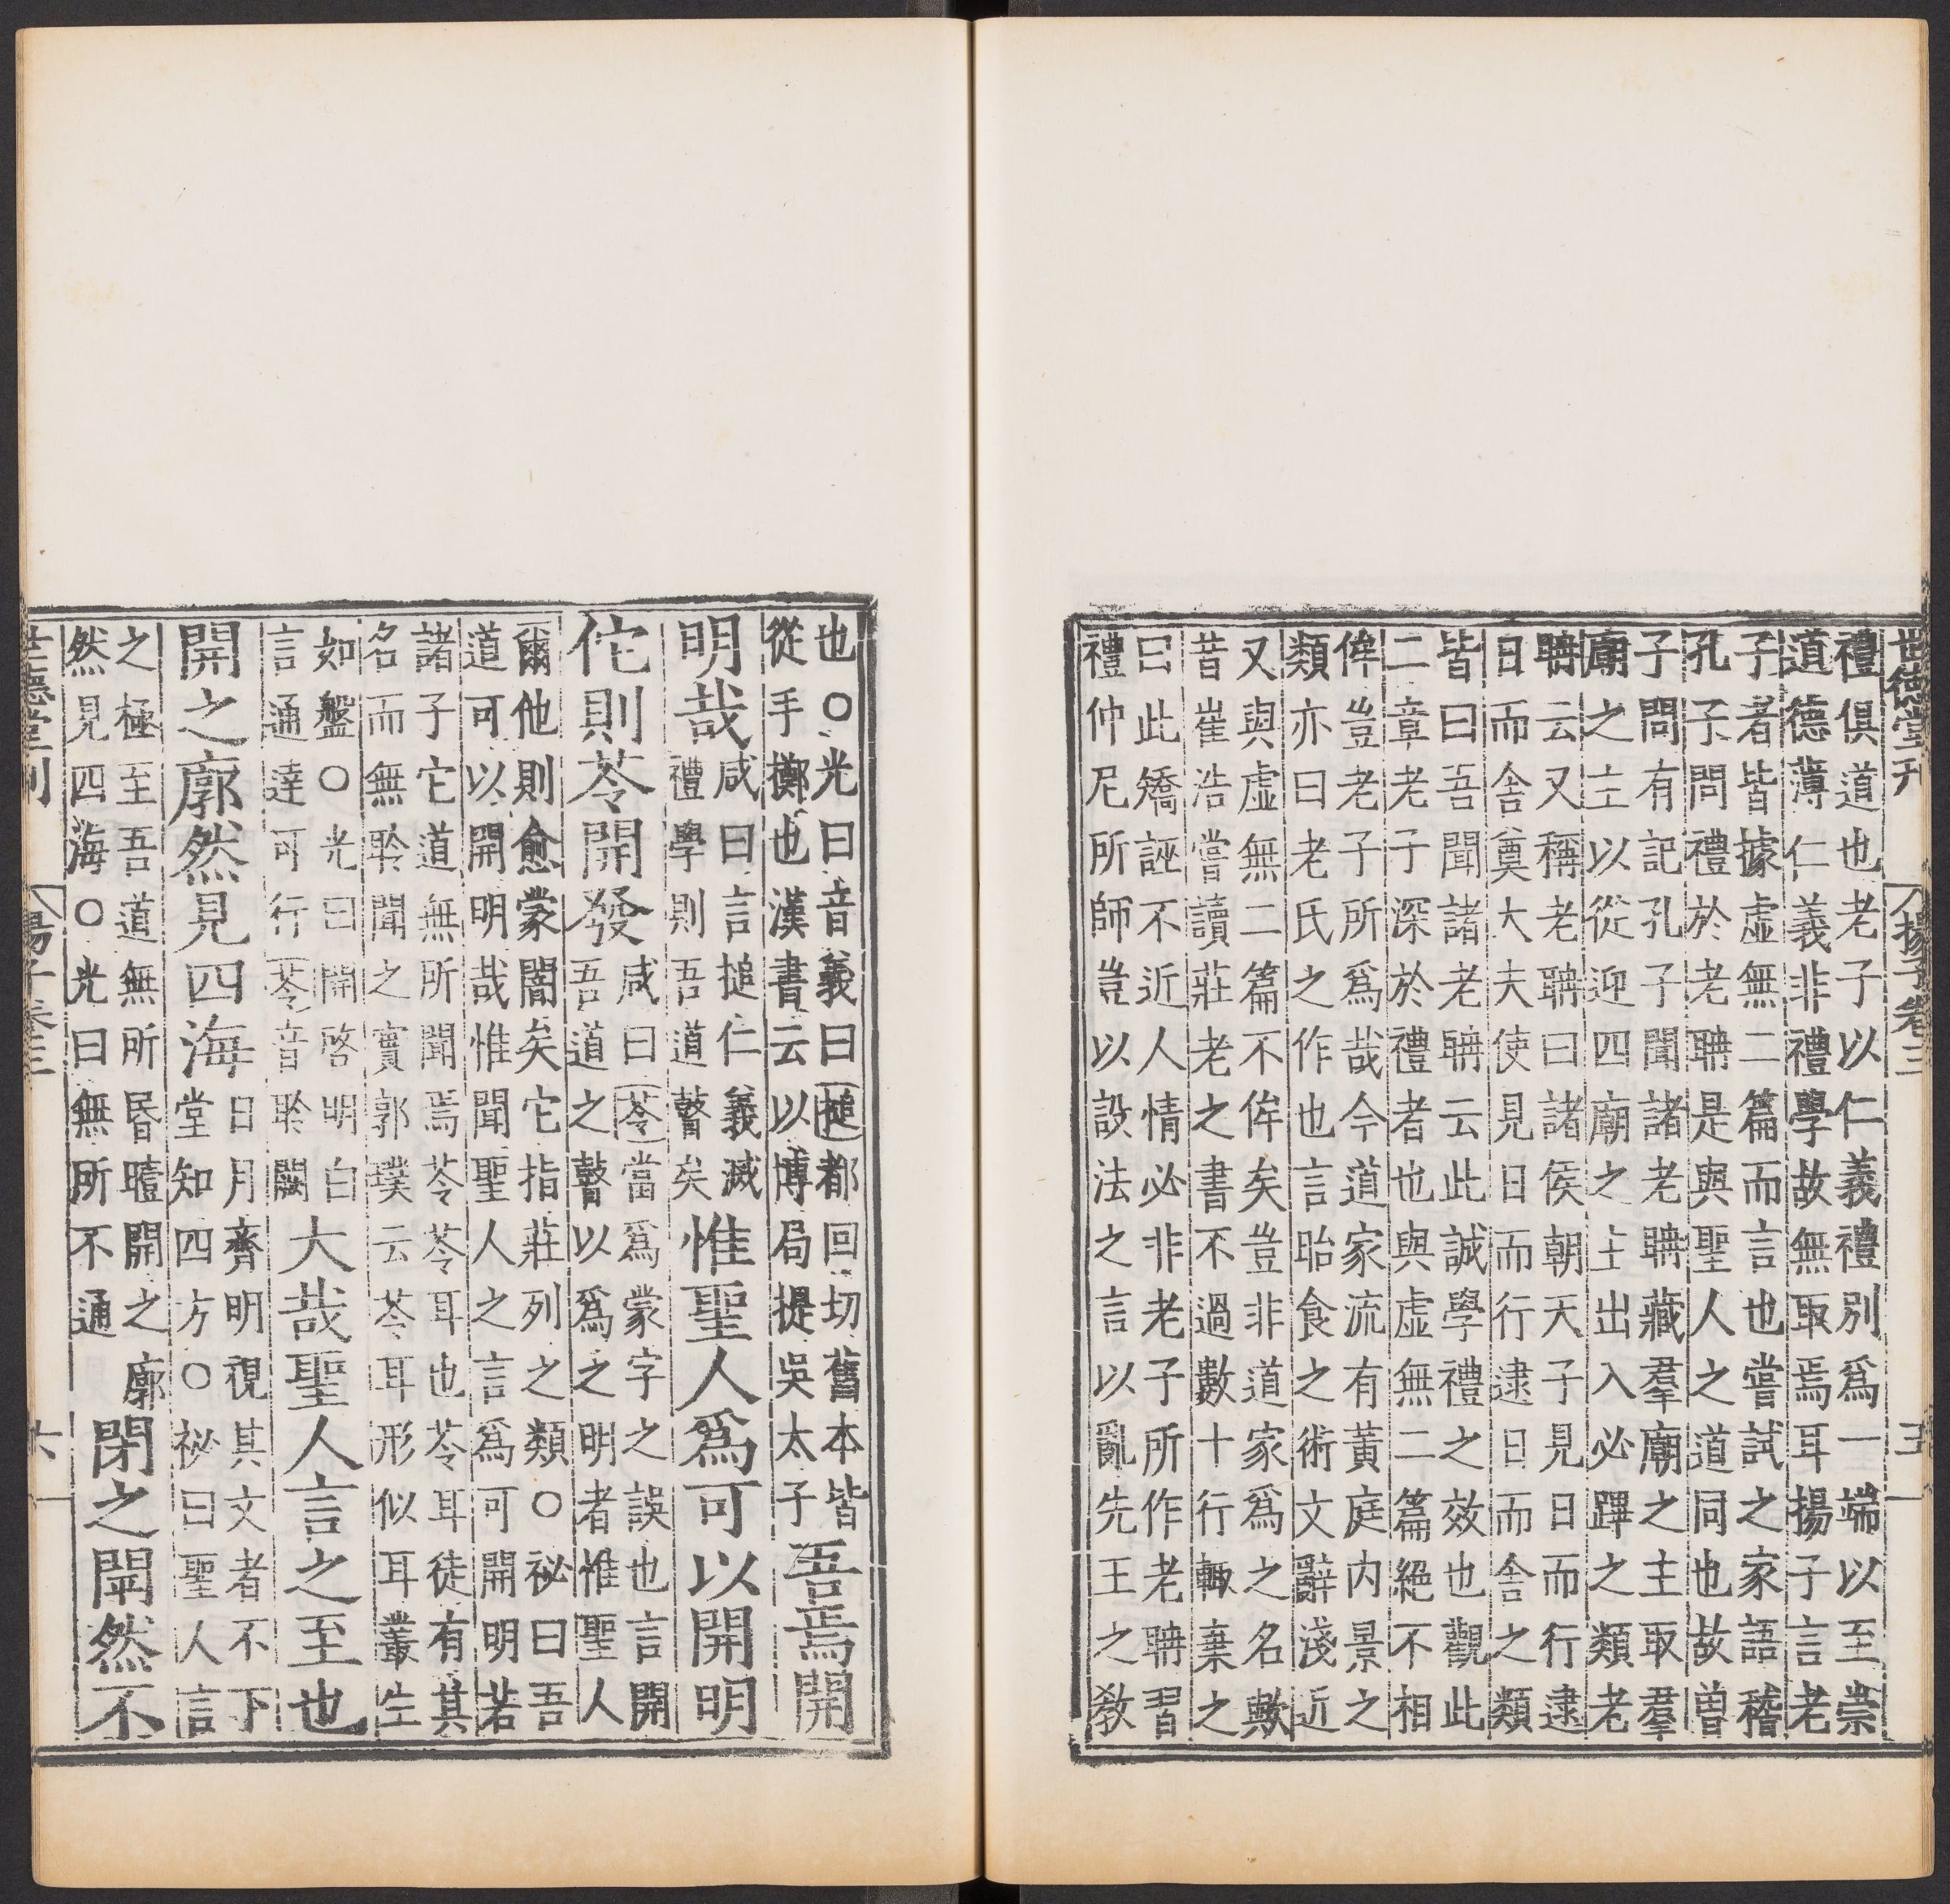 世德堂刊 揚子卷三 五
禮俱道也老子以仁義禮別爲一端以至崇
道德薄仁義非禮學故無取焉耳揚子言老
子者皆據虛無二篇而言也嘗試之家語稽
孔子問禮於老聃是與聖人之道同也故曾
子問有記孔子聞諸老聃藏羣廟之主取羣
廟之主以從迎四廟之主出入必蹕之類老
聃云又稱老聃曰諸侯朝天子見日而行逮
日而舍奠大夫使見日而行逮日而舍之類
皆曰吾聞諸老聃云此誠學禮之效也觀此
二章老子深於禮者也與虛無二篇絕不相
侔豈老子所爲哉今道家流有黃庭内景之
類亦曰老氏之作也言眙食之術文辭淺近
又與虛無二篇不侔矣豈非道家爲之名歟
昔崔浩嘗讀莊老之書不過數十行輙棄之
曰此矯誣不近人情必非老子所作老聃習
禮仲尼所師豈以設法之言以亂先王之教
也○光曰音義曰搥都回切舊本皆
從手擲也漢書云以博局提吳太子
吾焉開
明哉
咸曰言搥仁義滅
禮學則吾道瞽矣
惟聖人爲可以開明
佗則苓開發
咸曰苓當爲蒙字之誤也言開
吾道之瞽以爲之明者惟聖人
爾他則愈蒙闇矣它指莊列之類○祕曰吾
道可以開明哉惟聞聖人之言爲可開明若
諸子它道無所聞焉苓苓耳也苓耳徒有其
名而無聆聞之實郭璞云苓耳形似耳叢生
如盤○光曰開啓明白
言通達可行苓音聆闕
大哉聖人言之至也
開之廓然見四海
日月齊明視其文者不下
堂知四方○祕曰聖人言
之極至吾道無所昬曀開之廓
然見四海○光曰無所不通
閉之閛然不
世德堂刊 揚子卷三 六